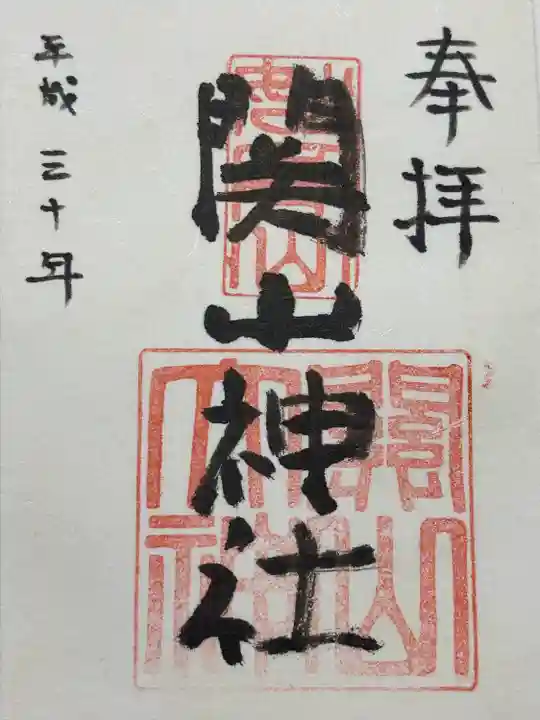 奉拝
関山神社
平成三十年